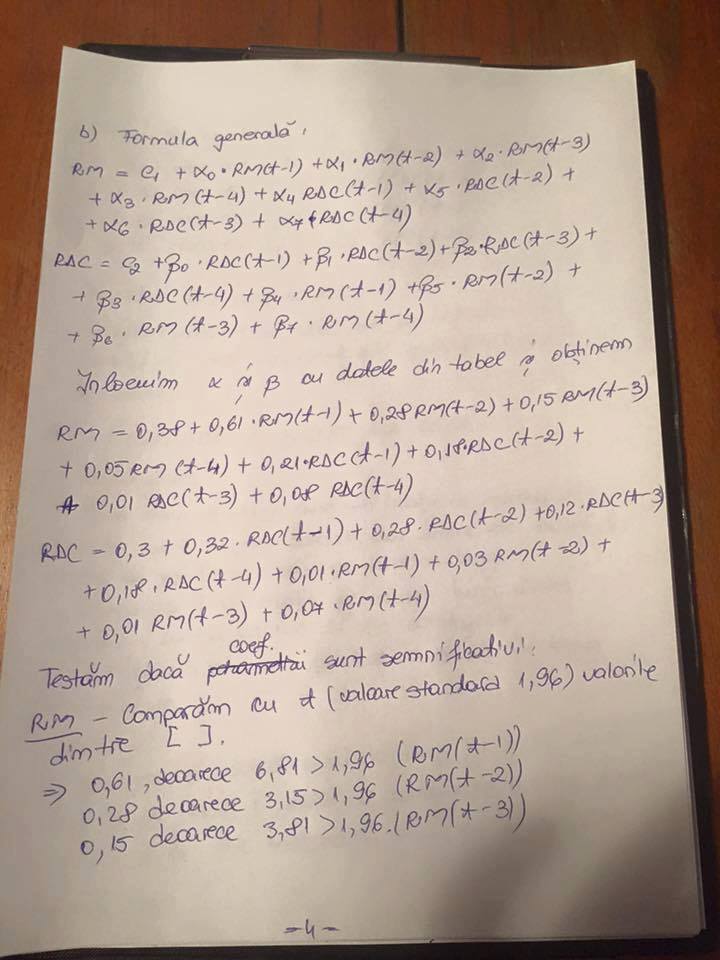 b) Formula generală:
RM = C1 + α0·RM(t-1) + α1·RM(t-2) + α2·RM(t-3)
+ α3·RM(t-4) + α4 RDC(t-1) + α5·RDC(t-2) +
+ α6·RDC(t-3) + α7·RDC(t-4)
RDC = C2 + β0·RDC(t-1) + β1·RDC(t-2) + β2·RDC(t-3) +
+ β3·RDC(t-4) + β4·RM(t-1) + β5·RM(t-2) +
+ β6·RM(t-3) + β7·RM(t-4)
Inlocuim α și β cu datele din tabel și obținem
RM = 0,38 + 0,61·RM(t-1) + 0,28 RM(t-2) + 0,15 RM(t-3)
+ 0,05 RM(t-4) + 0,21·RDC(t-1) + 0,18·RDC(t-2) +
+ 0,01 RDC(t-3) + 0,08 RDC(t-4)
RDC = 0,3 + 0,32·RDC(t-1) + 0,28·RDC(t-2) + 0,12·RDC(t-3
+ 0,18·RDC(t-4) + 0,01·RM(t-1) + 0,03 RM(t-2) +
+ 0,01 RM(t-3) + 0,07·RM(t-4)
coef.
Testăm dacă sunt semnificativi:
RM – Comparăm cu t (valoare standard 1,96) valorile
dintre [ ].
⇒ 0,61, deoarece 6,81 > 1,96 (RM(t-1))
0,28 deoarece 3,15 > 1,96 (RM(t-2))
0,15 deoarece 3,81 > 1,96. (RM(t-3))
-4-